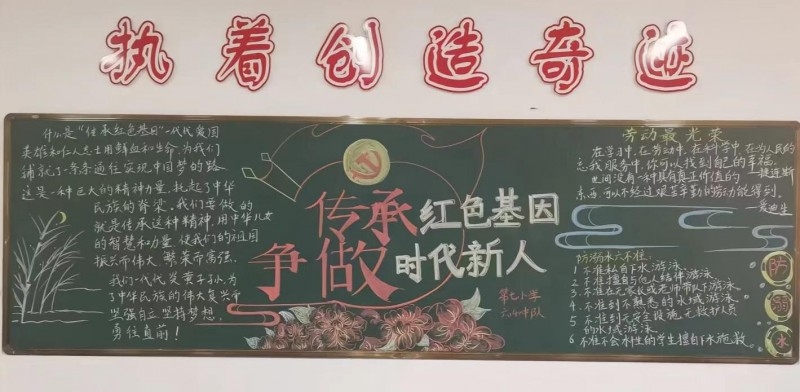 执着创造奇迹
什么是“传承红色基因”一代代爱国
英雄和仁人志士用鲜血和生命，为我们
铺就了一条条通往实现中国梦的路
这是一种巨大的精神力量，托起了中华
民族的脊梁。我们要做的
就是传承这种精神，用中华儿女
的智慧和力量，使我们的祖国
振兴而伟大 繁荣而富强。
我们一代代炎黄子孙，为
了中华民族的伟大复兴而
坚强自立 坚持梦想，
勇往直前！
传承红色基因
争做时代新人
第七小学
中队
劳动最光荣
在学习中，在劳动中，在科学中，在为人民的
忘我服务中，你可以找到自己的幸福。
—捷连斯
世间没有一种具有真正价值的
东西，可以不经过艰苦辛勤的劳动能得到。
—爱迪生
防溺水六不准：
1 不准私自下水游泳
2 不准擅自与他人结伴游泳
3 不准在无家长或老师带队下游泳
4 不准到不熟悉的水域游泳
5 不准到无安全设施、无救护人员
的水域游泳
6 不准不会水性的学生擅自下水施救。
防
溺
水